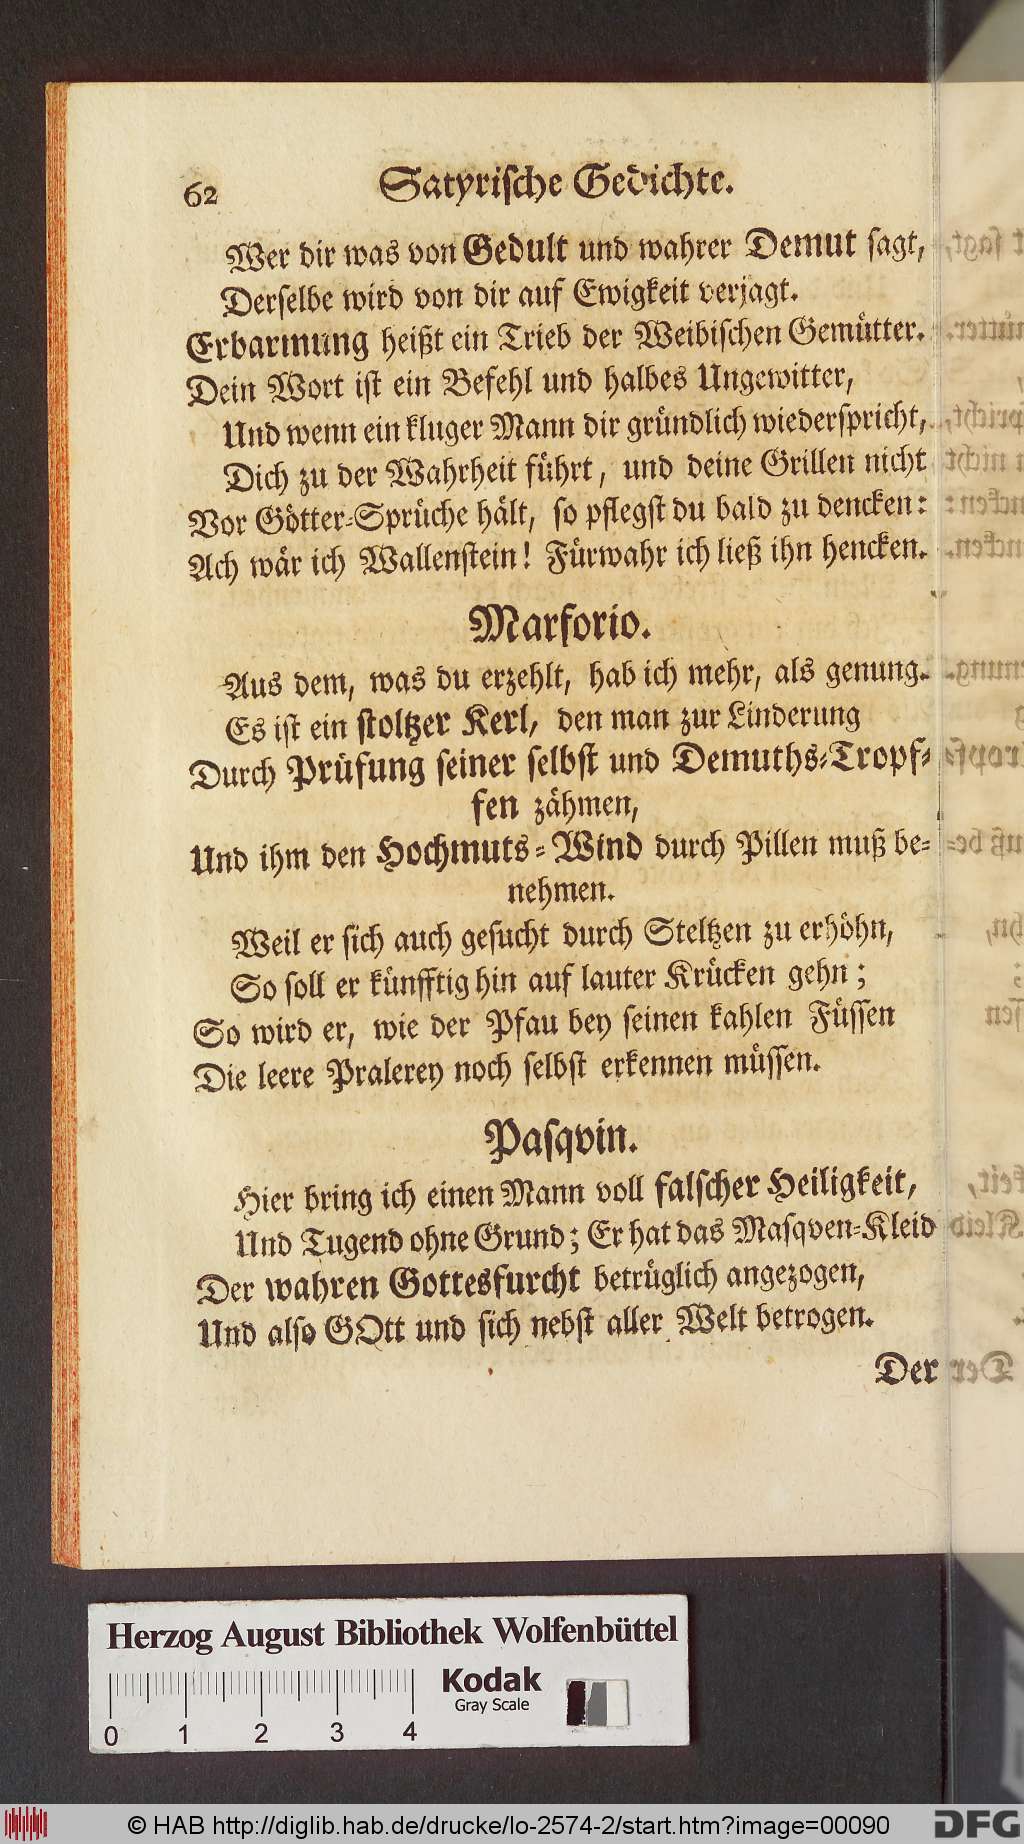 62 Satyrische Gedichte.
Wer dir was von Gedult und wahrer Demut sagt,
Derselbe wird von dir auf Ewigkeit verjagt.
Erbarmung heißt ein Trieb der Weibischen Gemütter.
Dein Wort ist ein Befehl und halbes Ungewitter,
Und wenn ein kluger Mann dir gründlich wiederspricht,
Dich zu der Wahrheit führt, und deine Grillen nicht
Vor Götter-Sprüche hält, so pflegst du bald zu dencken:
Ach wär ich Wallenstein! Fürwahr ich ließ ihn hencken.
Marforio.
Aus dem, was du erzehlt, hab ich mehr, als genung.
Es ist ein stoltzer Kerl, den man zur Linderung
Durch Prüfung seiner selbst und Demuths-Tropf-
fen zähmen,
Und ihm den Hochmuts-Wind durch Pillen muß be-
nehmen.
Weil er sich auch gesucht durch Steltzen zu erhöhn,
So soll er künfftig hin auf lauter Krücken gehn;
So wird er, wie der Pfau bey seinen kahlen Füssen
Die leere Pralerey noch selbst erkennen müssen.
Pasqvin.
Hier bring ich einen Mann voll falscher Heiligkeit,
Und Tugend ohne Grund; Er hat das Masqven-Kleid
Der wahren Gottesfurcht betrüglich angezogen,
Und also GOtt und sich nebst aller Welt betrogen.
Der
Herzog August Bibliothek Wolfenbüttel
Kodak
Gray Scale
0 1 2 3 4
© HAB http://diglib.hab.de/drucke/lo-2574-2/start.htm?image=00090
DFG